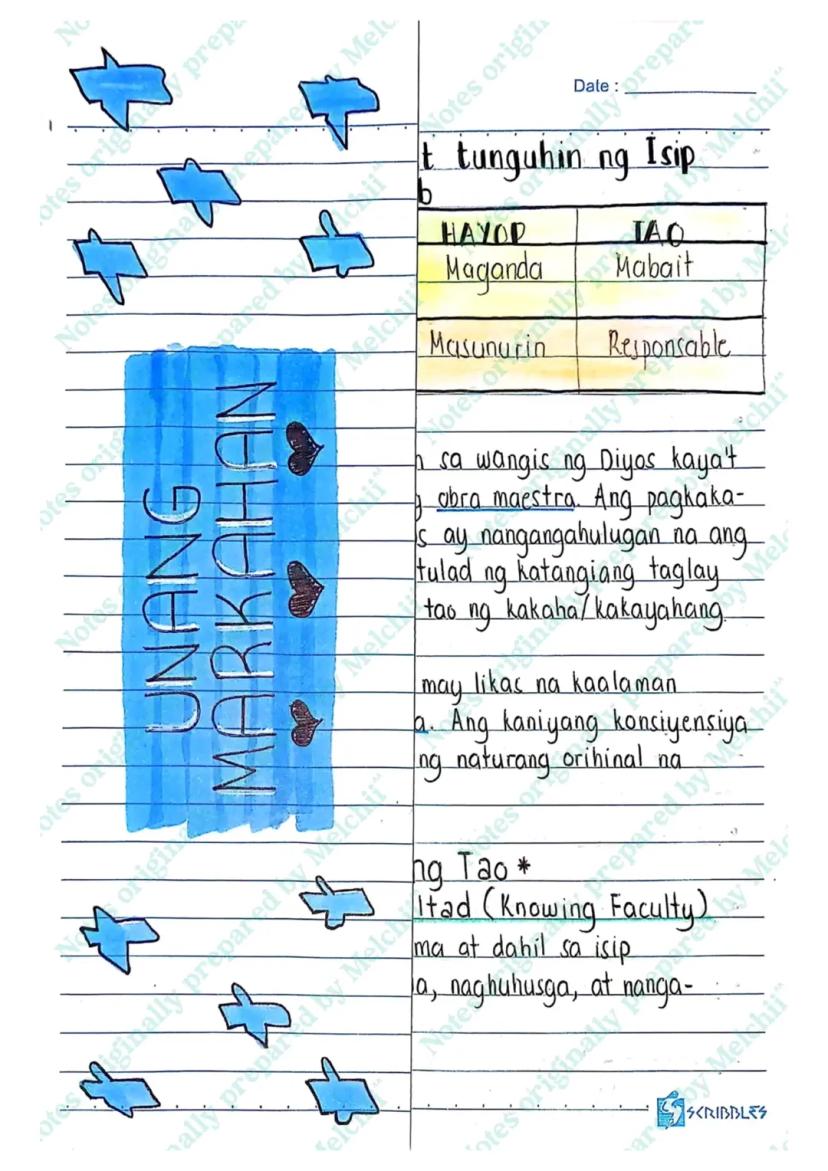 Date :
t tunguhin ng Isip
b
HAYOP TAO
Maganda Mabait
Masunurin Responsable
n sa wangis ng Diyos kaya't
g obra maestra. Ang pagkaka-
s ay nangangahulugan na ang
tulad ng katangiang taglay
tao ng kakaha/kakayahang
may likas na kaalaman
a. Ang kaniyang konsiyensiya
ng naturang orihinal na
ng Tao *
ltad (Knowing Faculty)
ma at dahil sa isip
a, naghuhusga, at nanga-
UNANG
MARKAHAN
SCRIBBLES
Notes originally prepared by Melchii